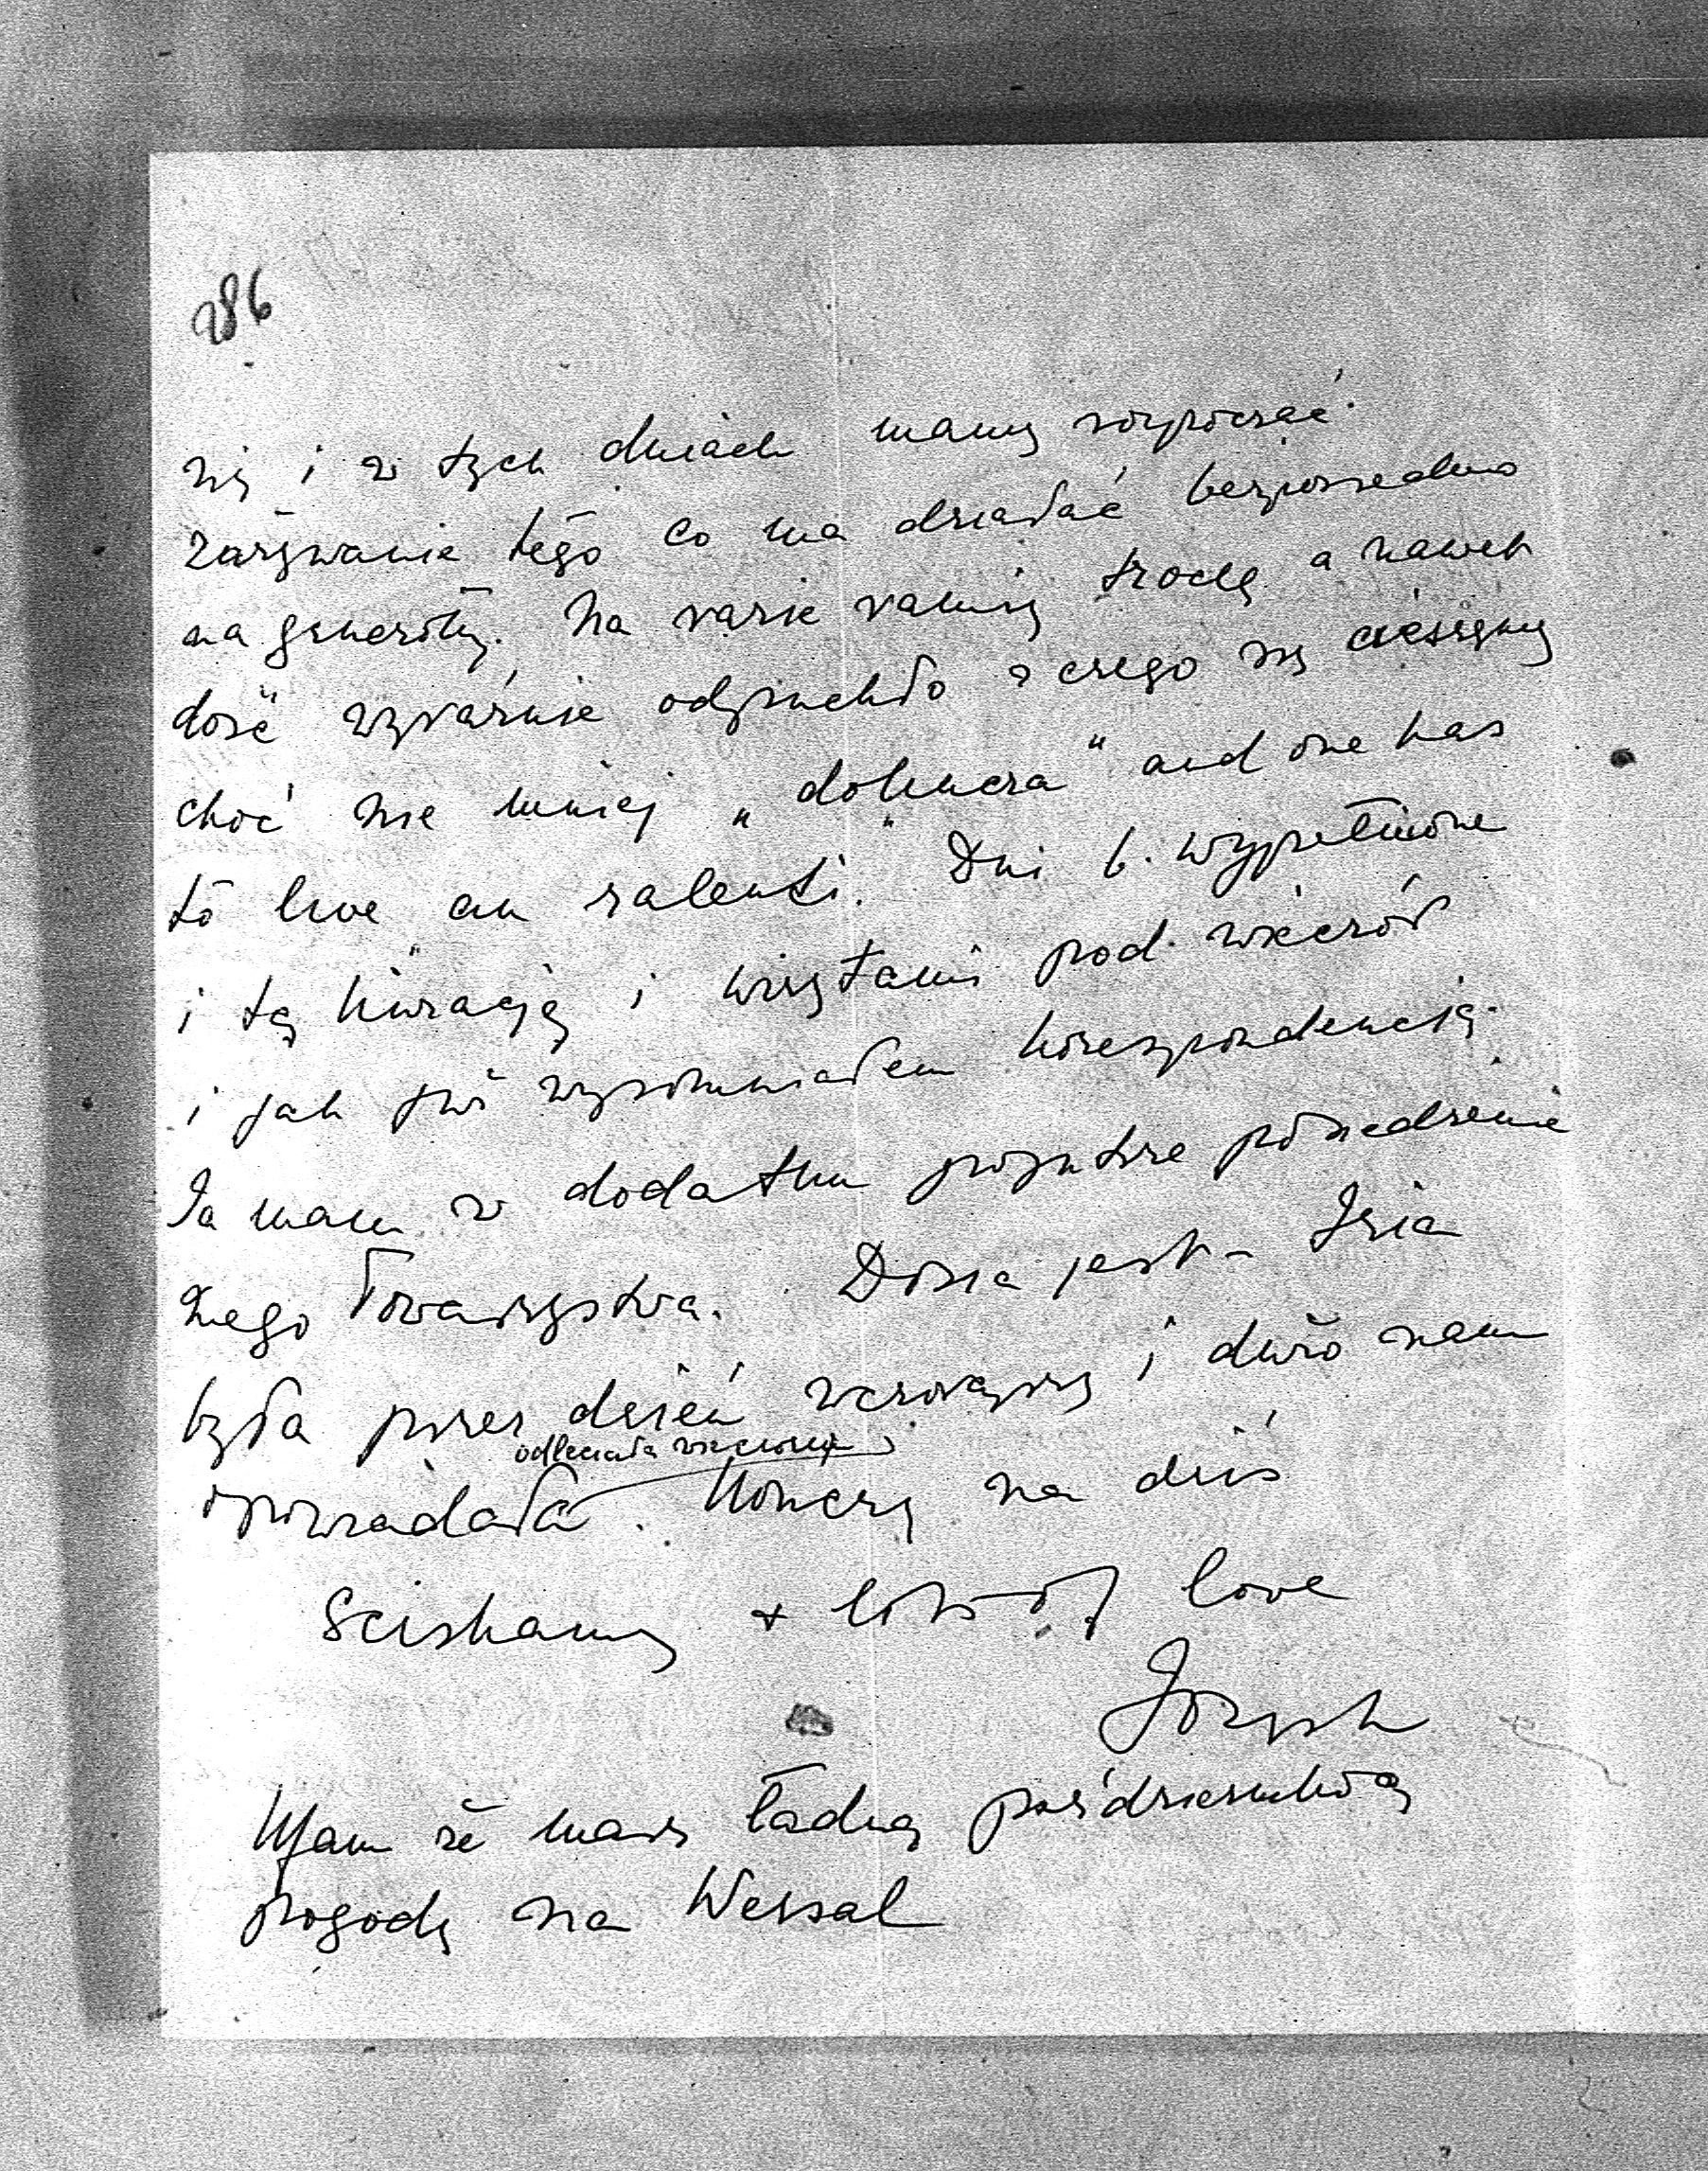 286
się i w tych dniach mamy rozpocząć
zażywanie tego co ma działać bezpośrednio
na gruczoły. Na razie ramię trochę a nawet
dość wyraźnie odpuchło z czego się cieszymy
choć nie mniej "dokucza" and one has
to live au ralenti. Dni b. wypełnione
i tą kuracją i wizytami pod wieczór
i jak już wspomniałem korespondencją.
Ja mam w dodatku pojutrze posiedzenie
mego Towarzystwa. Dosia jest – Izia
była przez dzień wczorajszy i dużo nam
odleciała wieczorem
opowiadała. Kończę na dziś
Sciskamy + lots of love
Józef
Ufam że masz ładną październikową
pogodę na Wessal